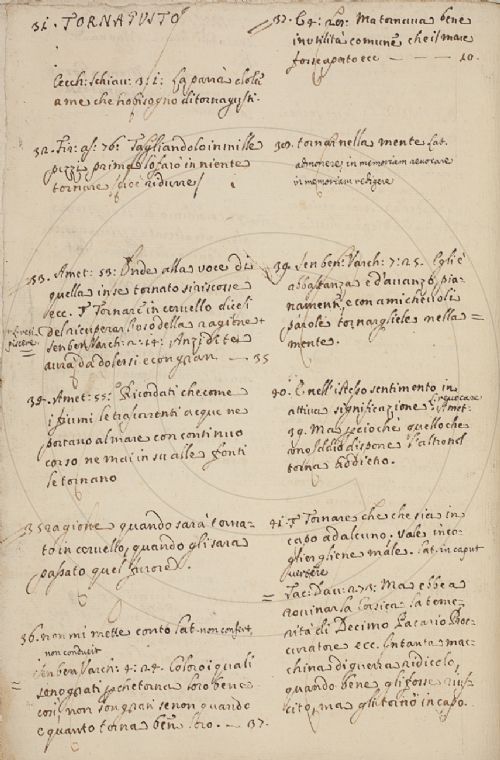 31. TORNAGUSTO
Cecch: Schiav: 3: 1: La paura
a me che ho bisogno di tornagusti.
32. Fir: as: 76: Tagliandolo in mille
pezzi prima lo farò in niente
tornare / cioè ridurre /
33. Amet: 53: Onde alla voce di
quella in se tornato si riscosse
ecc. Tornare in cervello dicesi
del ricuperar l'uso della ragione +
Sen ben Varch: 2: 14: Anzi di te
aurà da dolersi e con gran — 35
34. Amet: 55: Ricordati che come
i fiumi le tue correnti acque ne
portano al mare con continuo
corso ne mai in su alle fonti
se tornano
35 ragione quando sarà torna-
to in cervello, quando gli sarà
passato quel furore.
36. non mi mette conto Lat. non confert,
non conducit
Sen ben Varch: 4: 24. Coloro i quali
son grati perche torna loro bene
così, non son grati se non quando
e quanto torna ben loro. — 37.
37. E 4: Ma tornava bene
in utilità comune che il mare
forse aperto ecc — — — 10.
38. tornar nella mente Lat.
admonere, in memoriam revocare
in memoriam redigere
39. Sen ben: Varch: 7: 25. Egli è
abbastanza e d'avanzo, pia-
namente, e con amichevoli
parole tornargliele nella =
mente.
40. E nell'istesso sentimento in
attiva significazione. revocare Amet:
39. Ma perciocche quello che
uno Iddio dispone l'altro nol
torna addietro.
41. Tornare che che sia in
capo ad alcuno. Vale inco-
gliergliene male. Lat. in caput
vertere
= Tac: Dav: 271: Ma ebbe a
rovinar la Corsica la teme-
rità di Decimo Pacario Proc-
curatore ecc. In tanta mac-
china di guerra ridicolo,
quando bene gli fosse riu-
scito, ma gli tornò in capo.